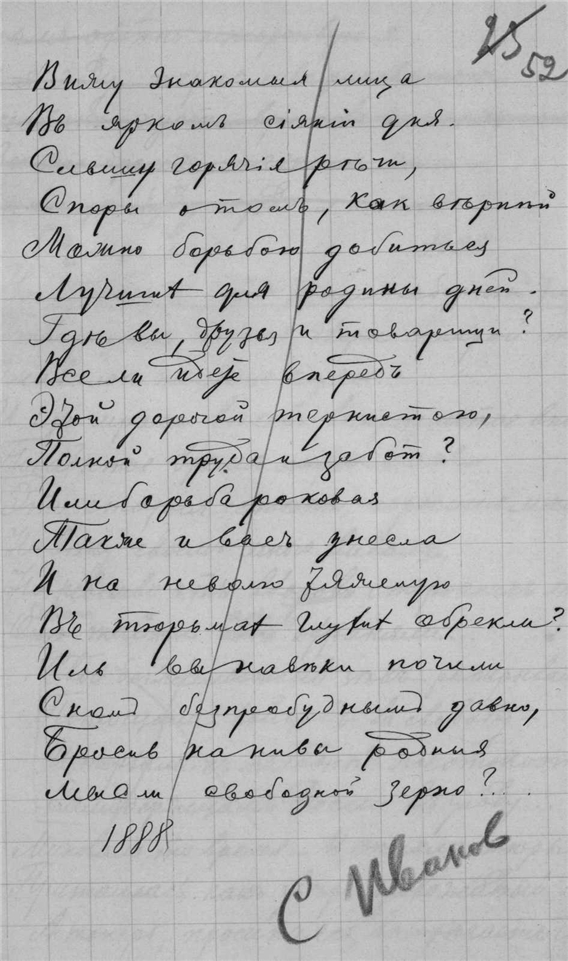 25 52
Вижу знакомыя лица
Въ яркомъ сіяніи дня.
Слышу горячія рѣчи,
Споры о томъ, как вѣрнѣй
Можно борьбою добиться
Лучших для родины дней.
Гдѣ вы, друзья и товарищи?
Все ли идете впередъ
Этой дорогой тернистою,
Полной труда и забот?
Или борьба роковая
Также и васъ унесла
И на неволю тяжелую
Въ тюрьмах глухих обрекла?
Иль вы навѣки почили
Сномъ безпробуднымъ давно,
Бросив на нивы родныя
Мысли свободной зерно?...
1888
С Иванов